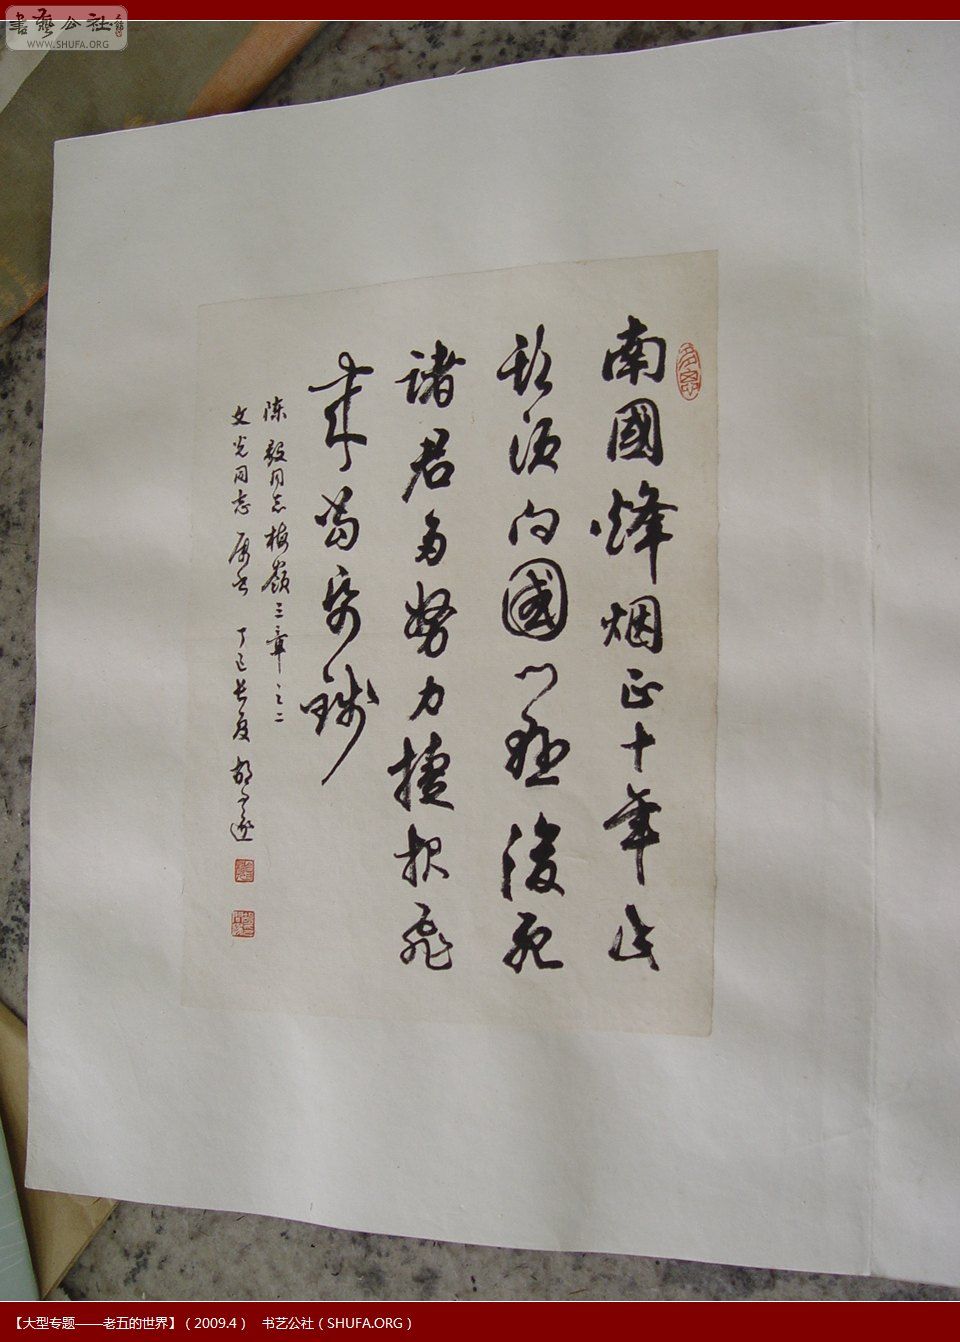 書艺公社
WWW.SHUFA.ORG
南國烽烟正十年此
頭須向國门懸後死
諸君多努力捷报飛
来當紙錢
陈毅同志梅嶺三章之二
文光同志属书 丁巳长夏 胡问遂
【大型专题——老五的世界】（2009.4） 书艺公社（SHUFA.ORG）